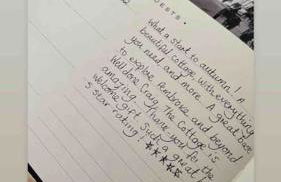 GUESTS
What a start to autumn! A
beautiful cottage with everything
you need and more. A great base
to explore Pembroke and beyond
Well done Craig. The Cottage is
amazing. Thank you for the
welcome gift. Such a great
5 star rating! ★★★★★